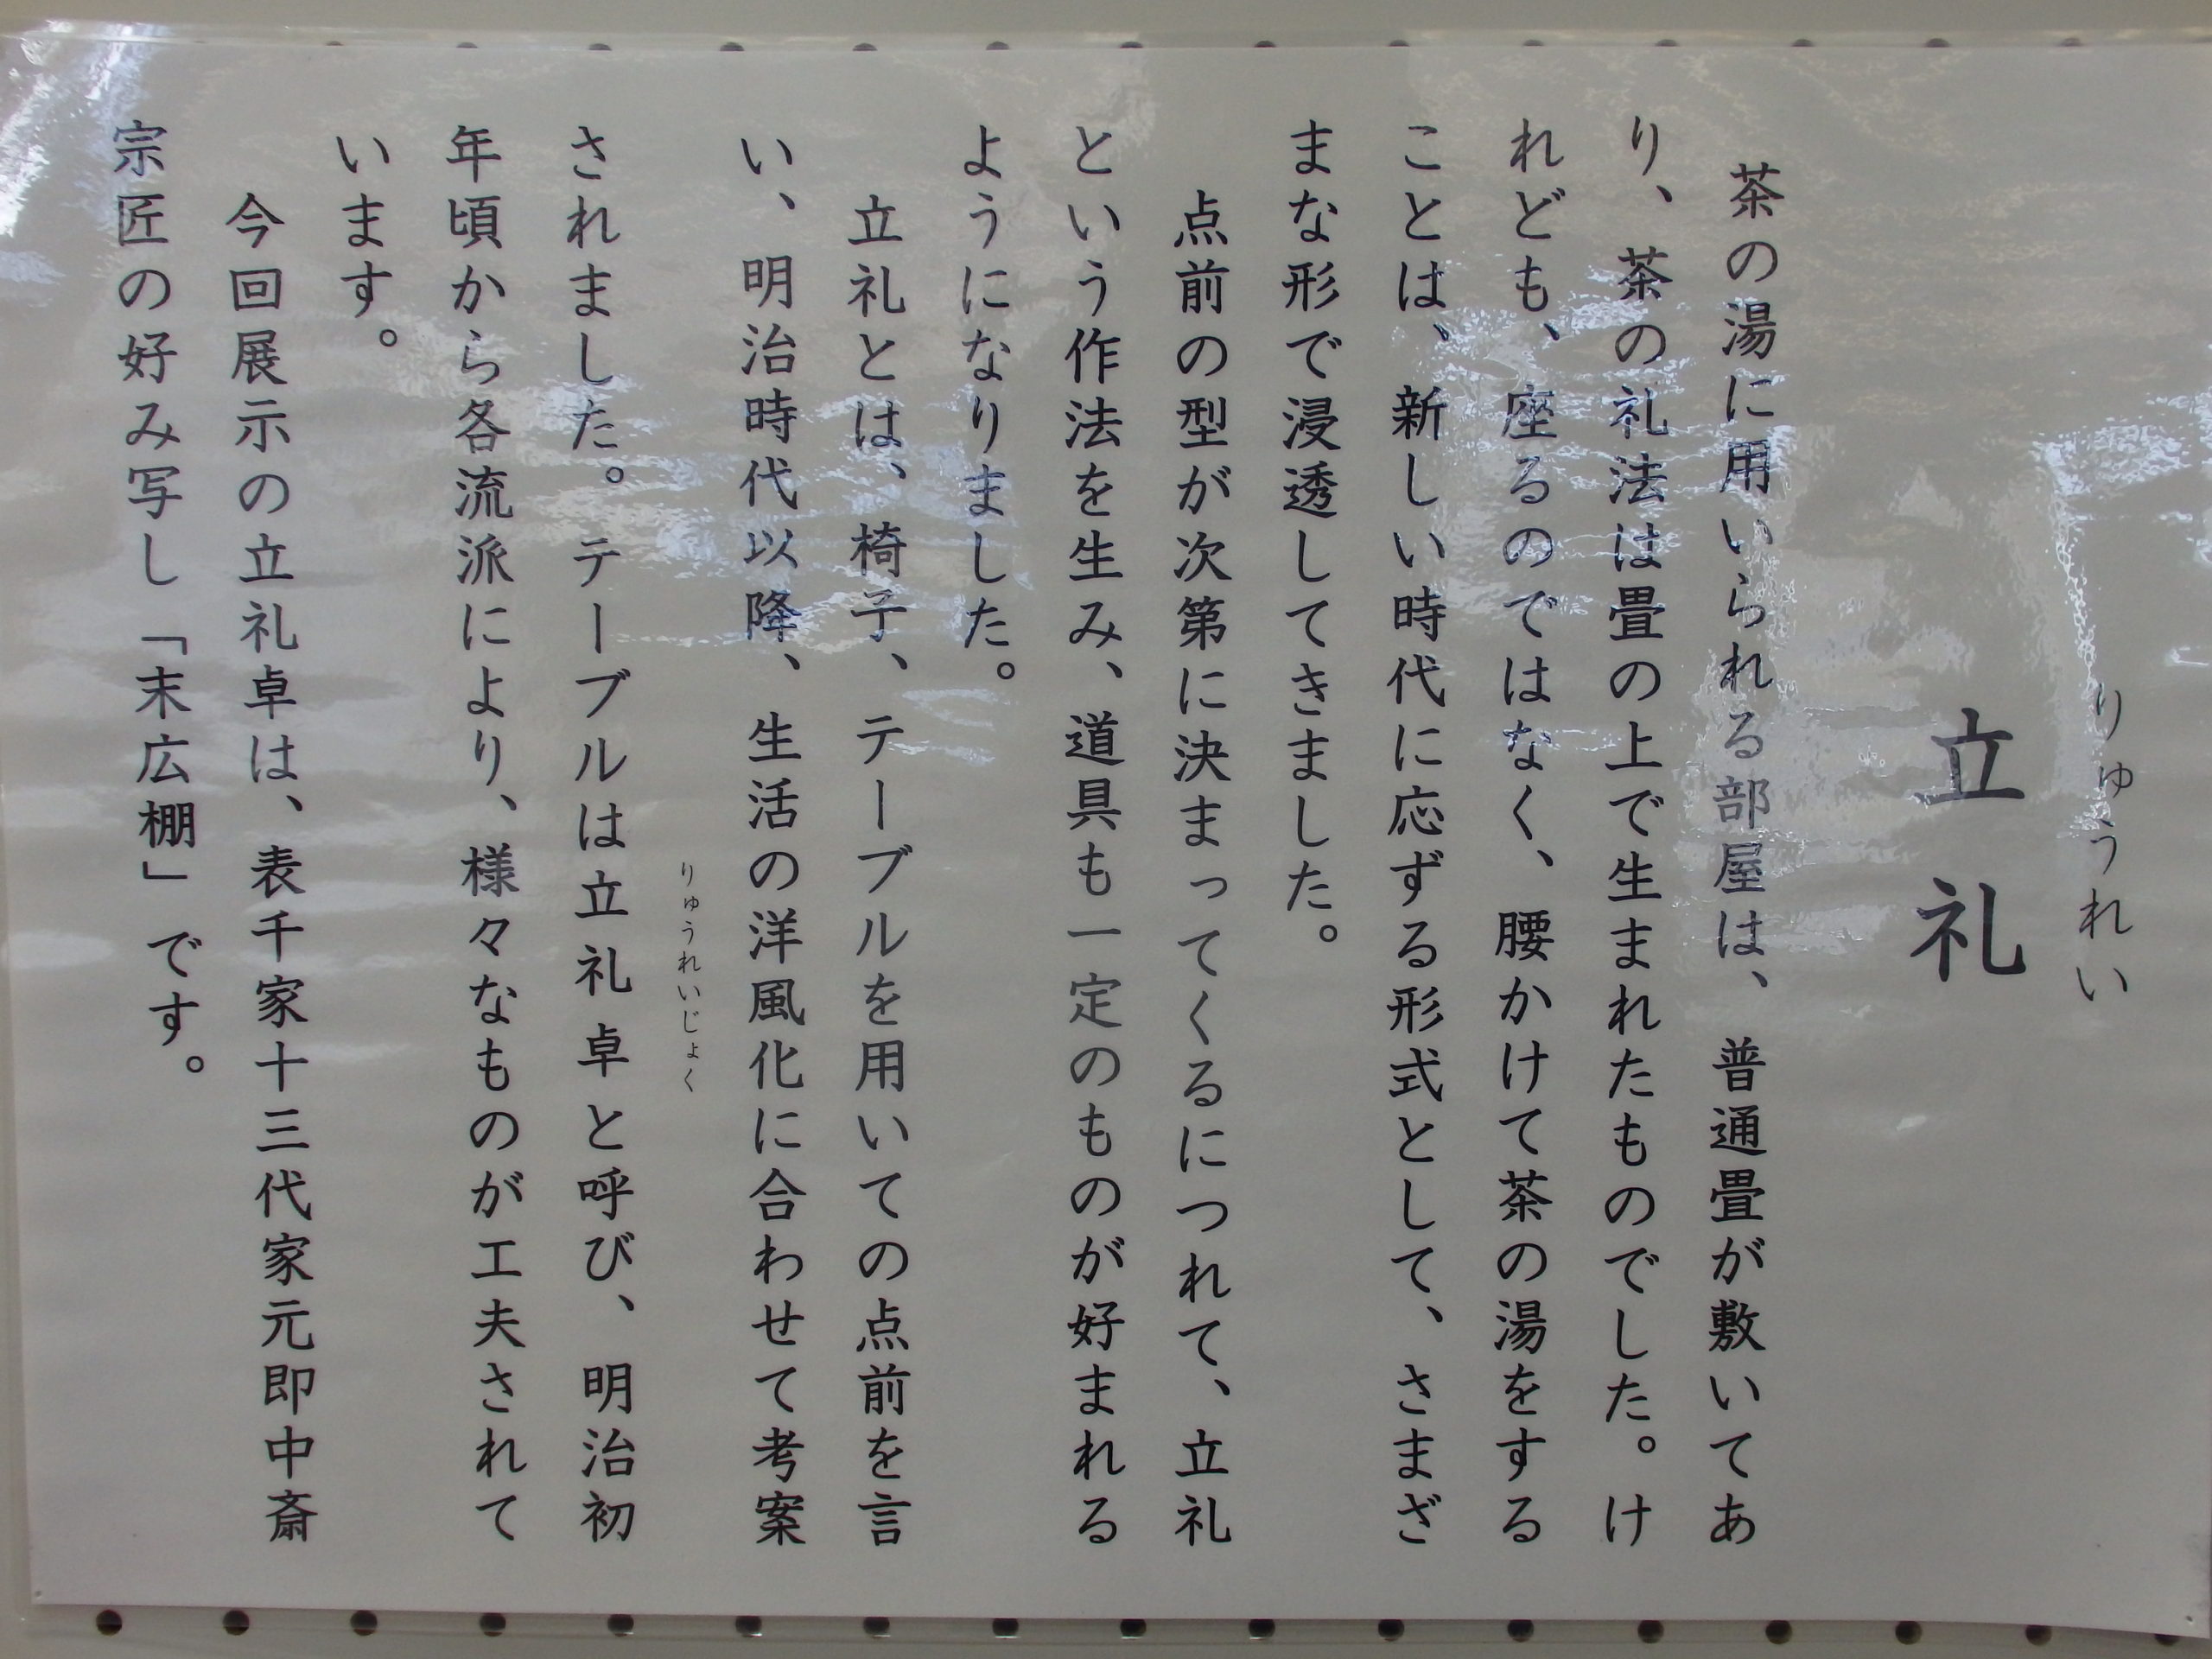 りゅうれい
立礼
茶の湯に用いられる部屋は、普通畳が敷いてあ
り、茶の礼法は畳の上で生まれたものでした。け
れども、座るのではなく、腰かけて茶の湯をする
ことは、新しい時代に応ずる形式として、さまざ
まな形で浸透してきました。
点前の型が次第に決まってくるにつれて、立礼
という作法を生み、道具も一定のものが好まれる
ようになりました。
立礼とは、椅子、テーブルを用いての点前を言
い、明治時代以降、生活の洋風化に合わせて考案
りゅうれいじょく
されました。テーブルは立礼卓と呼び、明治初
年頃から各流派により、様々なものが工夫されて
います。
今回展示の立礼卓は、表千家十三代家元即中斎
宗匠の好み写し「末広棚」です。